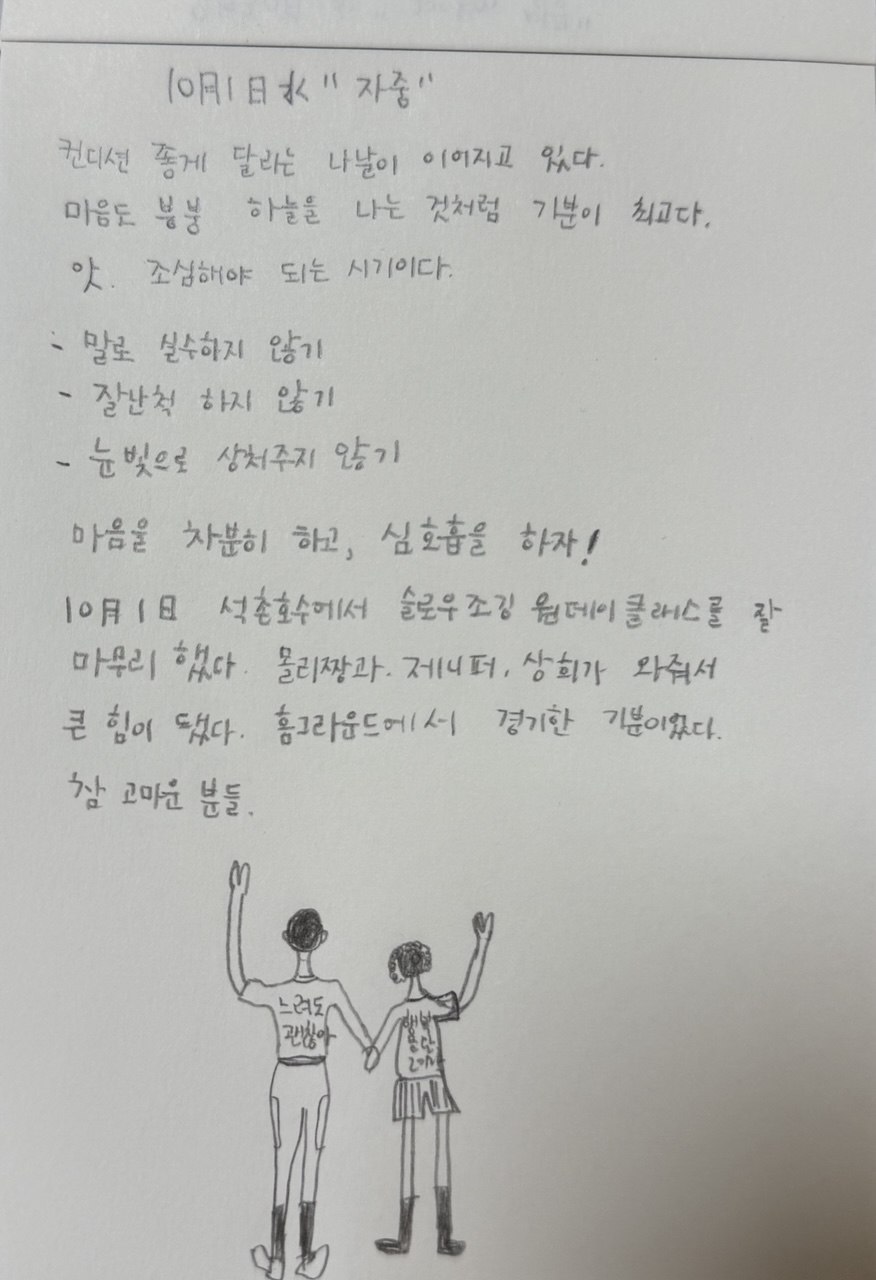 10月1日 水 "자중"
컨디션 좋게 달라는 나날이 이어지고 있다.
마음도 붕붕 하늘을 나는 것처럼 기분이 최고다.
앗. 조심해야 되는 시기이다.
- 말로 실수하지 않기
- 잘난척 하지 않기
- 눈빛으로 상처주지 않기
마음을 차분히 하고, 심호흡을 하자!
10月1日 석촌호수에서 슬로우조깅 원데이클래스를 잘
마무리 했다. 몰리짱과. 제니퍼, 상희가 와줘서
큰 힘이 됐다. 홈그라운드에서 경기한 기분이었다.
참 고마운 분들.
느려도
괜찮아
행복